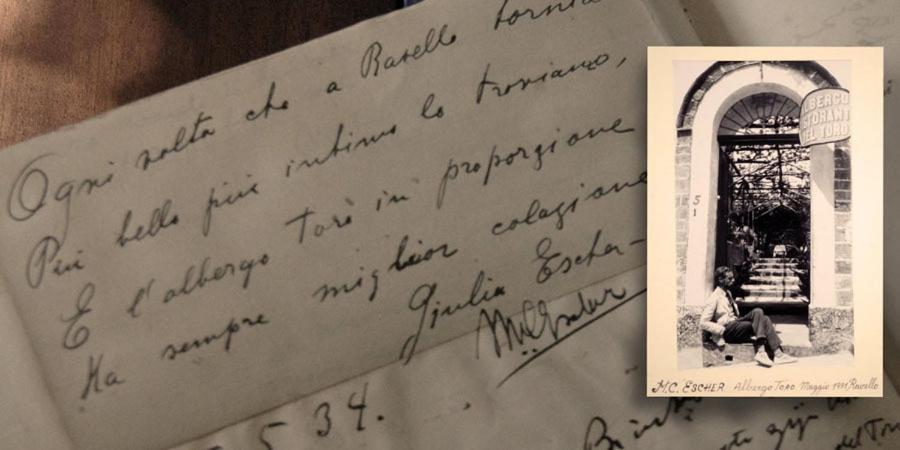 Ogni volta che a Ravello tornia
Più bello più intimo lo troviamo,
E l'albergo Toro in proporzione
Ha sempre miglior colazione
Giulia Escher-
MCEscher
5 34.
del Toro
ALBERGO
STORANT
DEL TORO
5
1
M.C. ESCHER Albergo Toro Maggio 1931, Ravello